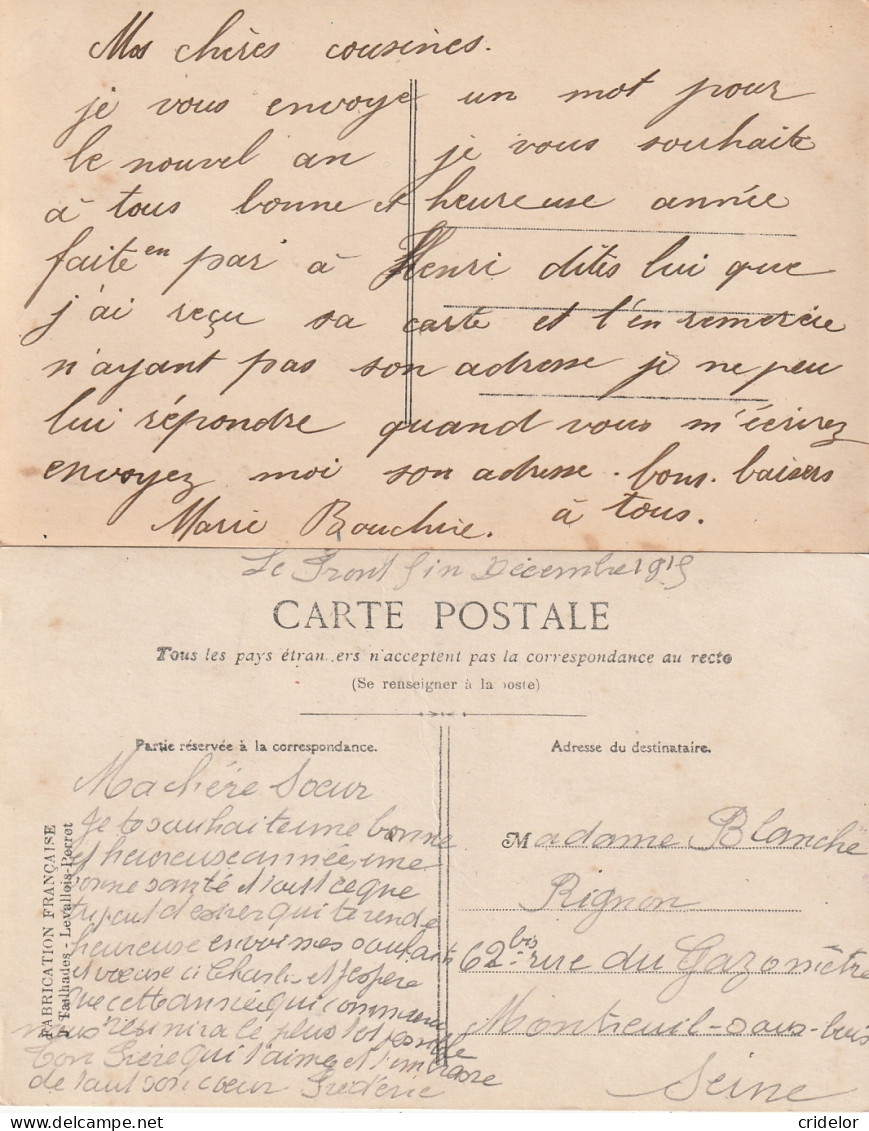 Mes chères cousines.
je vous envoye un mot pour
le nouvel an je vous souhaite
à tous bonne et heureuse année
faite en par à Henri dites lui que
j'ai reçu sa carte et l'en remercie
n'ayant pas son adresse je ne peu
lui répondre quand vous m'écrirez
envoyez moi son adresse. bons. baisers
à tous.
Marie Bouchrie.
Le Front fin Décembre 1915
CARTE POSTALE
Tous les pays étrangers n'acceptent pas la correspondance au recto
(Se renseigner à la poste)
Partie réservée à la correspondance.
Adresse du destinataire.
FABRICATION FRANÇAISE
Tailhades - Levallois-Perret
Ma chére Soeur
Je te souhaite une bonne
et heureuse année, une
bonne santé et tout ce que
tu peut desirer qui te rende
heureuse
et Charles et J'espère
que cette année qui commence
nous réunira le plus tot
Ton Frère qui t'aime et t'embrasse
de tout son coeur Frédéric
Madame Blanche
Rignon
62 bis rue du Gazomètre
Montreuil-sous-bois
Seine
cridelor